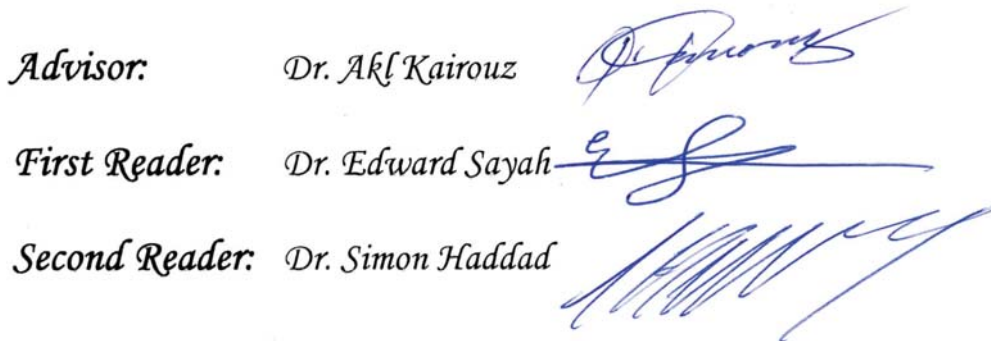 Advisor: Dr. Akl Kairouz
First Reader: Dr. Edward Sayah
Second Reader: Dr. Simon Haddad